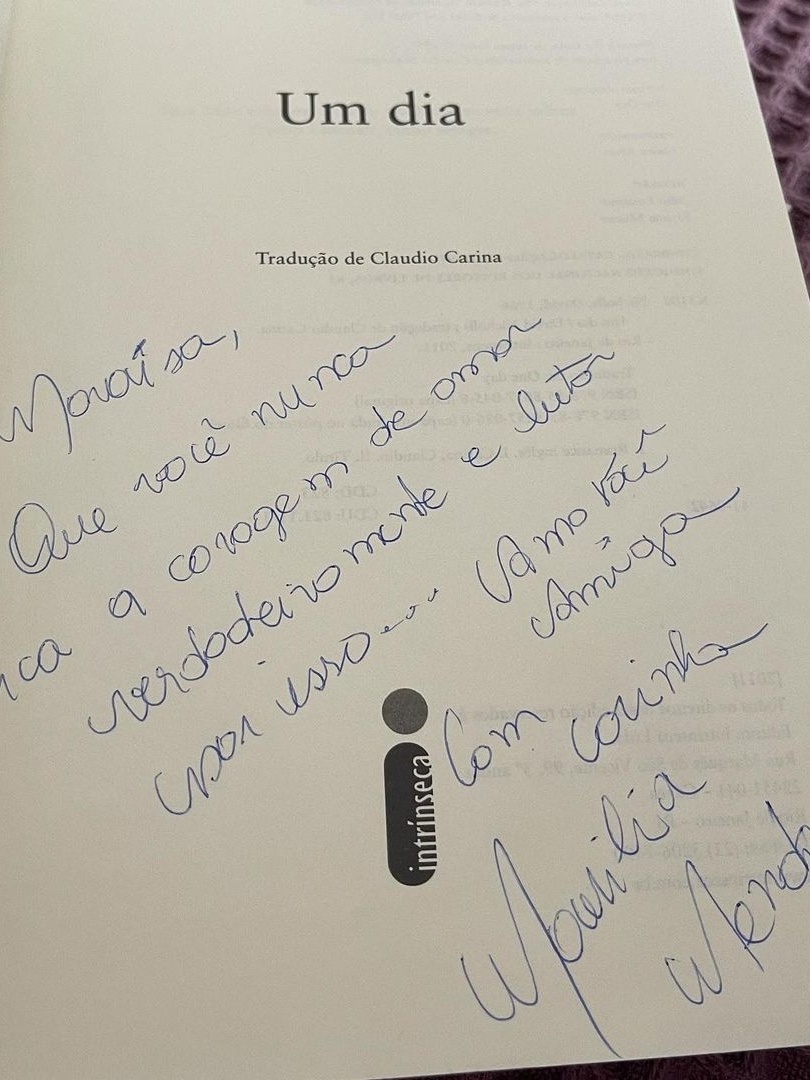 Um dia
Tradução de Claudio Carina
Maraísa,
Que você nunca
ca a coragem de amar
verdadeiramente e lutar
por isso... Amo você
Amiga
Com carinho
Marilia
Mendo
intrínseca